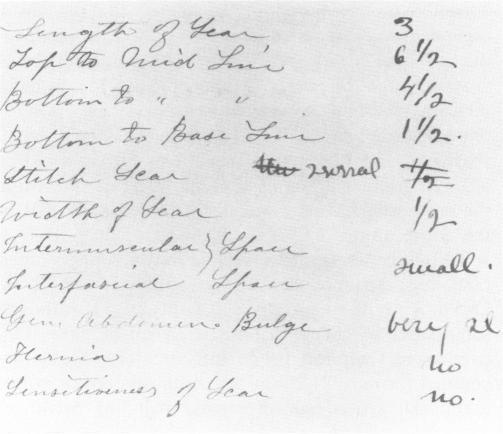 Length of Scar 3
Top to Mid Line 6 1/2
Bottom to " " 4 1/2
Bottom to Base Line 1 1/2.
Stitch Scar
Width of Scar 1/2
Intermuscular } Space
Interfascial Space small.
Gen. Abdomen. Bulge very sl
Hernia no
Sensitiveness of Scar no.